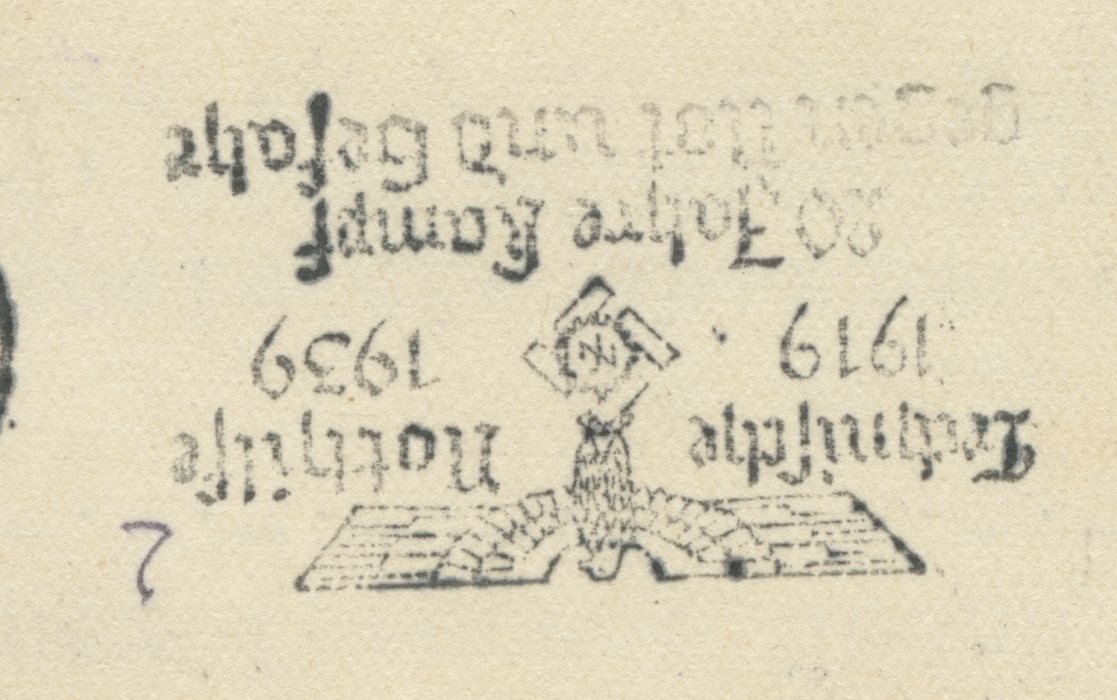 Technische Nothilfe
1919 1939
20 Jahre Kampf
gegen Not und Gefahr